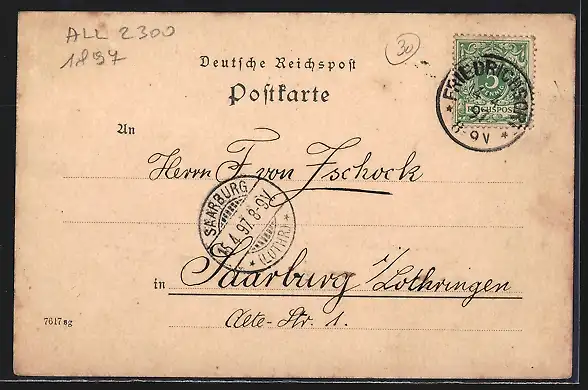 ALL 2300
1897
30
Deutsche Reichspost
Postkarte
5
REICHSPOST
* FRIEDRICHSORT *
97
8-9V
An
Herrn F. von Zschock
SAARBURG
15.4.97. 8-9V.
* (LOTHR) *
in Saarburg i/Lothringen
Alte-Str. 1.
7617 sg